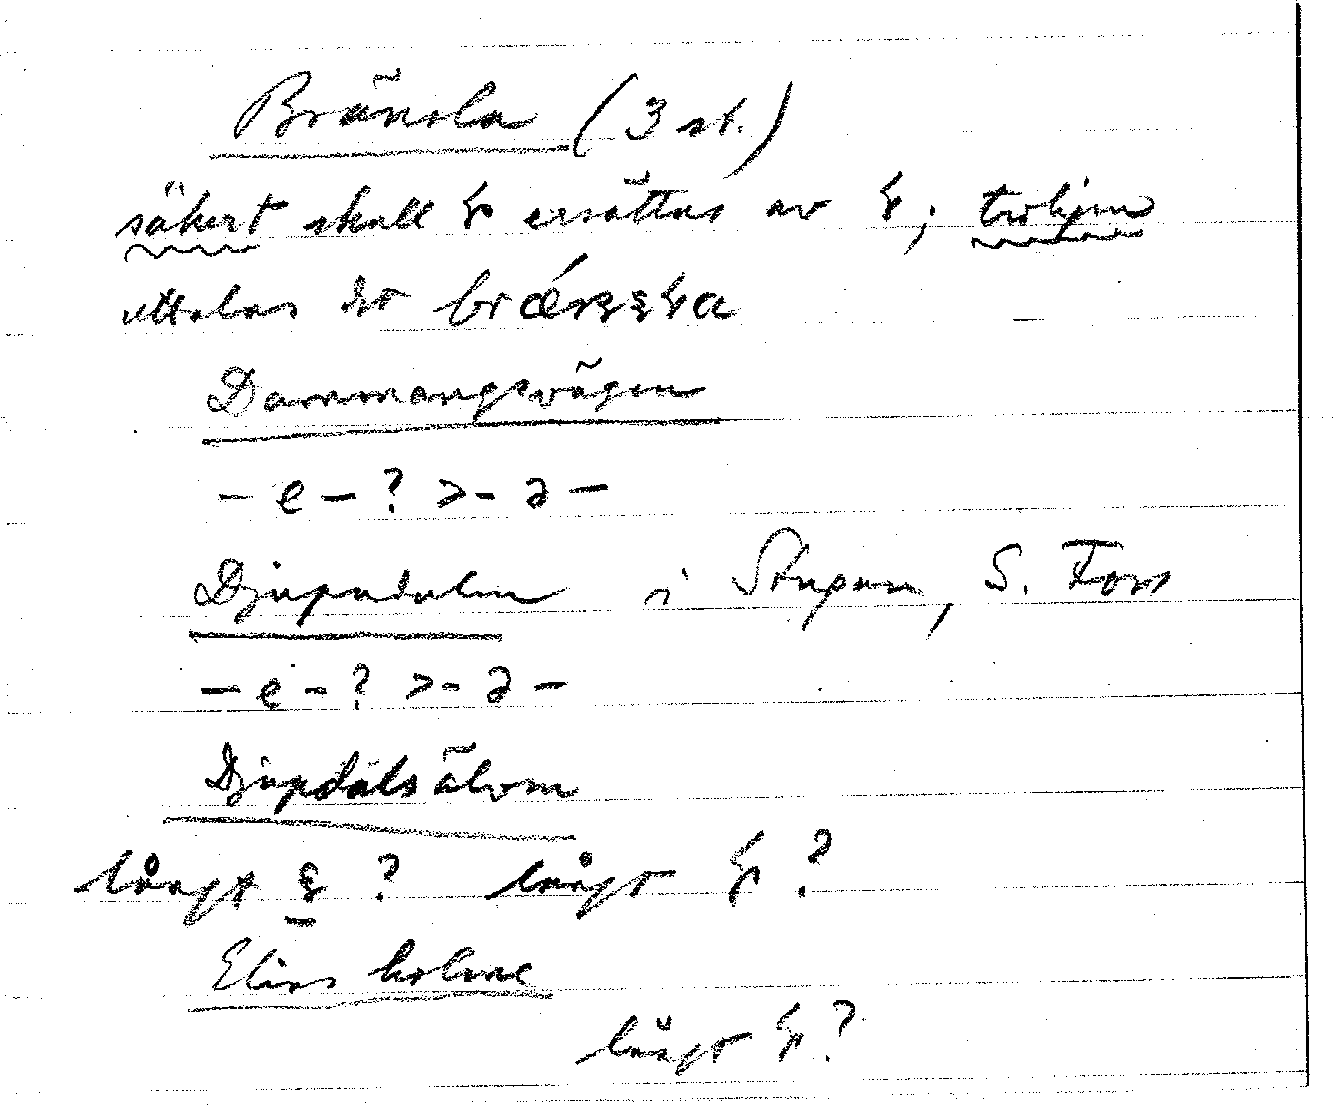 Bränsla (3 st.)
säkert skall ersättas av ; troligen
uttalas det
Dammangsvägen
- e - ? > - ə -
Djupadalen i Stugun, S. Fors
- e - ? > - ə -
Djupdalsälven
långt ? långt ?
Elias holme
långt ?